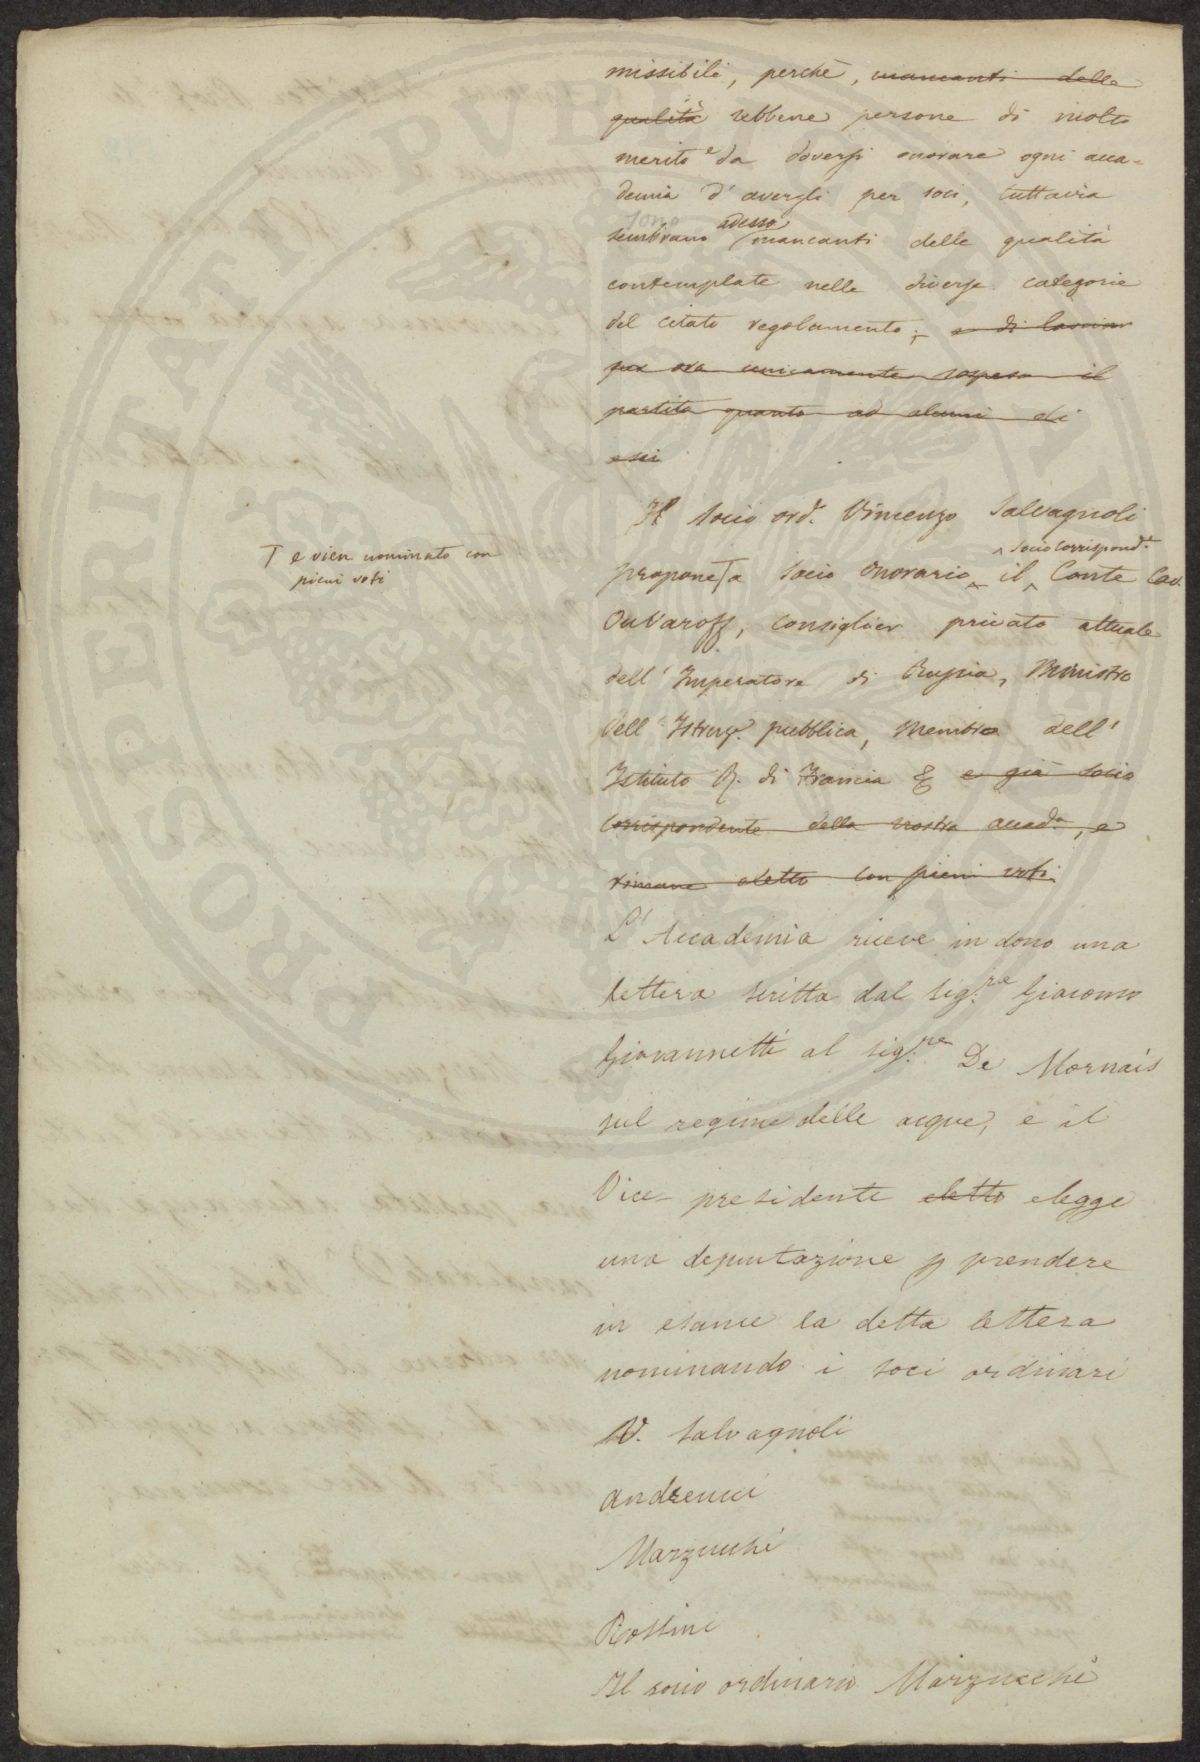 missibili, perchè, mancanti delle
qualità sebbene persone di molto
merito e da doversi onorare ogni acca=
demia d'avergli per soci, tuttavia
sono adesso
sembrano mancanti delle qualità
contemplate nelle diverse categorie
del citato regolamento; e di lasciar
per ora unicamente sospeso il
partito quanto ad alcuni di
essi
Il Socio ord. Vincenzo Salvagnoli
socio corrispond.e
propone T a socio onorario il Conte Cav.
T e vien nominato con
pieni voti
Ouvaroff, consiglier privato attuale
dell'Imperatore di Russia, Ministro
dell'Istruz. pubblica, Membro dell'
Istituto R. di Francia & e già socio
corrispondente della nostra accad.a, e
rimane eletto con pieni voti.
L'Accademia riceve in dono una
lettera scritta dal Sig.re Giacomo
Giovannetti al Sig.re De Mornais
sul regime delle acque, e il
Vice-presidente eletto elegge
una deputazione p prendere
in esame la detta lettera
nominando i soci ordinari
V. Salvagnoli
Andreucci
Marzucchi
Rossini
Il socio ordinario Marzucchi
PROSPERITATI PVBLICAE